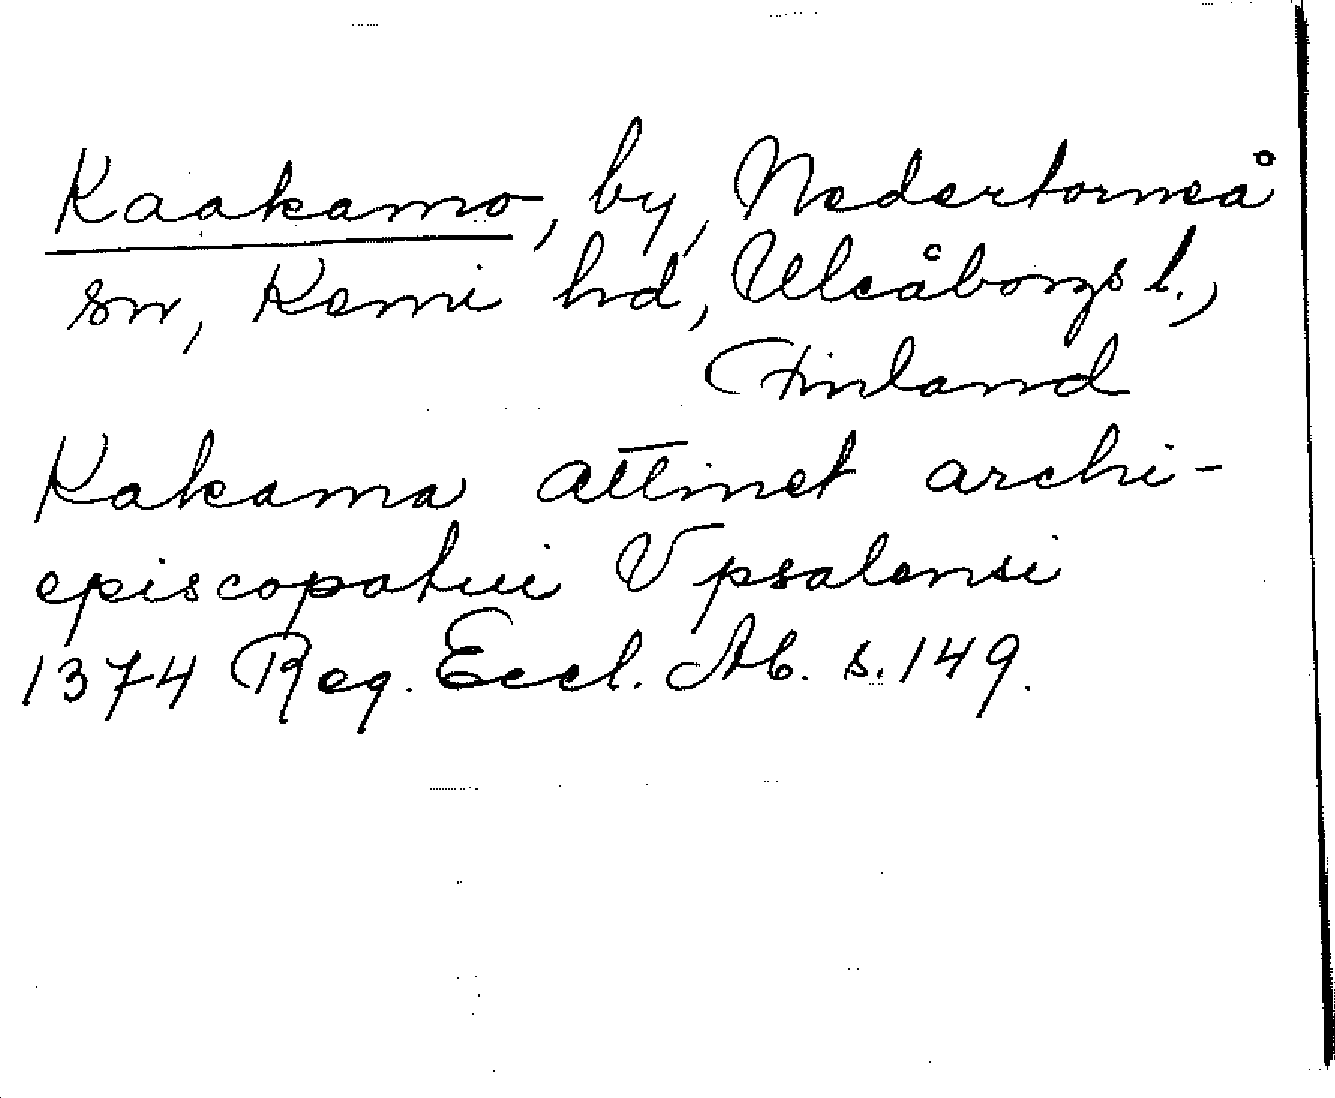 Kaakamo, by, Nedertorneå
sn, Kemi hd, Uleåborgs l.,
Finland
Kakama attinet archi-
episcopatui Vpsalensi
1374 Reg. Eccl. Ab. s. 149.